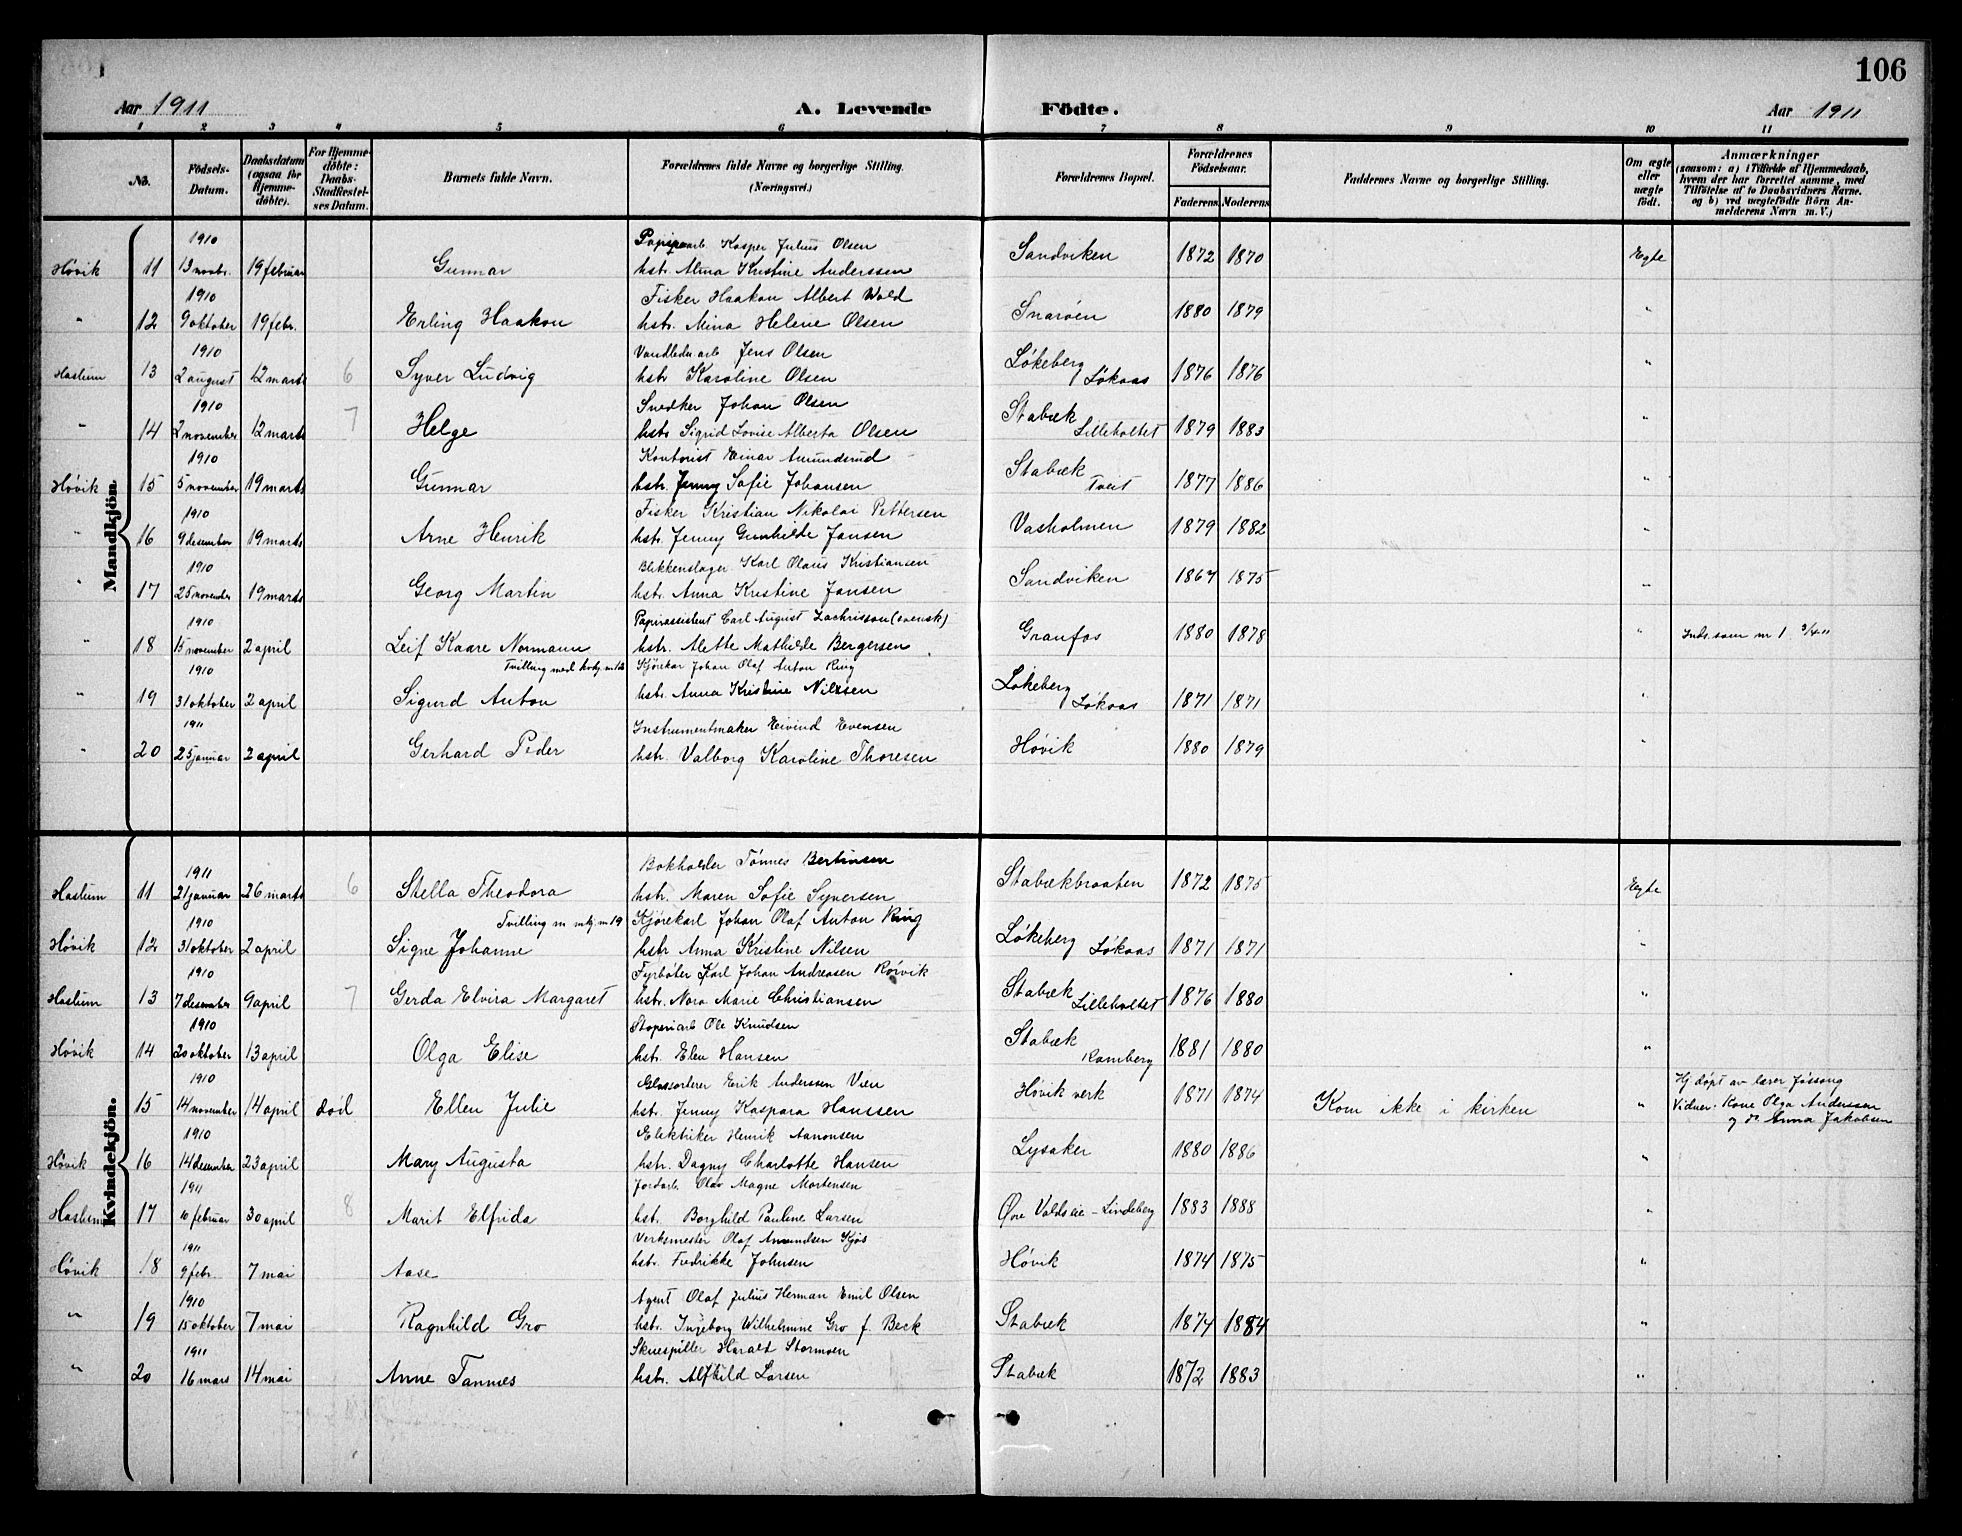 106
Aar 1911
A. Levende Födte.
Aar 1911
1 2 3 4 5 6 7 8 9 10 11
No.
Födsels-Datum.
Daabsdatum (ogsaa for Hjemmedöbte).
For Hjemmedöbte: Daabs-Stadfæstelses Datum.
Barnets fulde Navn.
Forældrenes fulde Navne og borgerlige Stilling. (Næringsvei.)
Forældrenes Bopæl.
Forældrenes Födselsaar.
Faderens Moderens
Faddernes Navne og borgerlige Stilling.
Om ægte eller uægte födt.
Anmærkninger
(saasom: a) i Tilfælde af Hjemmedaab,
hvem der har forrettet samme, med
Tilföielse af to Daabsvidners Navne,
og b) ved uægtefödte Börn An-
melderens Navn m. V.)
Mandkjön.
1910 Kasper Julius Olsen
Høvik 11 13 novbr. 19 februar Gunnar hstr. Alma Kristine Anderssen Sandviken 1872 1870 Egte
1910 Fisker Haakon Albert Wold
" 12 9 oktober 19 febr. Erling Haakon hstr. Mina Helene Olsen Snarøen 1880 1879 "
1910 Jens Olsen
Haslum 13 2 august 12 marts 6 Syver Ludvig hstr Karoline Olsen Løkeberg Løkaas 1876 1876 "
1910 Snedker Johan Olsen
" 14 2 november 12 marts 7 Helge hstr Sigrid Lovise Alberta Olsen Stabæk Lilleholtet 1879 1883 "
1910 Kontorist Einar Amundsrud
Høvik 15 5 november 19 marts Gunnar hstr. Jenny Sofie Johansen Stabæk Tveit 1877 1886 "
1910 Fisker Kristian Nikolai Pettersen
" 16 9 desember 19 marts Arne Henrik hstr. Jenny Gunhilde Jansen Vasholmen 1879 1882 "
1910 Blikkenslager Karl Olaus Kristiansen
" 17 25 november 19 marts Georg Martin hstr. Anna Kristine Jansen Sandviken 1867 1875 "
1910 Papirassistent Carl August Zachrisson (svensk)
" 18 15 november 2 april Leif Kaare Normann hstr. Alette Mathilde Bergersen Granfos 1880 1878 " Inds. som nr 1 3/4 11
1910 Tvilling med kvkj nr 12 Kjørekar Johan Olaf Anton Ring
" 19 31 oktober 2 april Sigurd Anton hstr. Anna Kristine Nilsen Løkeberg Løkaas 1871 1871 "
1911 Instrumentmaker Eivind Evensen
" 20 25 januar 2 april Gerhard Peder hstr. Valborg Karoline Thoresen Høvik 1880 1879 "
Kvindekjön.
1911 Bokholder Tønnes Bertinsen
Haslum 11 21 januar 26 marts 6 Stella Theodora hstr. Maren Sofie Syversen Stabækbraaten 1872 1875 Egte
1910 Tvilling m mkj. nr 19 Kjørekarl Johan Olaf Anton Ring
Høvik 12 31 oktober 2 april Signe Johanne hstr Anna Kristine Nilsen Løkeberg Løkaas 1871 1871 "
1910 Fyrbøter Karl Johan Andreasen Rørvik
Haslum 13 7 desember 9 april 7 Gerda Elvira Margaret hstr. Nora Marie Christiansen Stabæk Lilleholtet 1876 1880 "
1910 Ole Knudsen
Høvik 14 20 oktober 13 april Olga Elise hstr. Elen Hansen Stabæk Ramberg 1881 1880 "
1910 Glassorterer Erik Anderssen Vien
15 14 november 14 april død Ellen Julie hstr. Jenny Kaspara Hanssen Høvik verk 1871 1874 Kom ikke i kirken " Hj. døpt av lærer Jøssong
Vidner: Kone Olga Anderssen
og do Anna Jakobsen
1910 Elektriker Henrik Aaronsen
Høvik 16 14 desember 23 april Mary Augusta hstr. Dagny Charlotte Hansen Lysaker 1880 1886 "
1911 Jordarb. Olav Magne Mortensen
Haslum 17 10 februar 30 april 8 Marit Elfrida hst. Borghild Pauline Larsen Øvre Voldseie - Lindeberg 1883 1888 "
1911 Verksmester Olaf Amundsen Kjøs
Høvik 18 9 febr. 7 mai Aase hstr. Fredrikke Johnsen Høvik 1874 1875 "
1910 Agent Olaf Julius Herman Emil Olsen
" 19 15 oktober 7 mai Ragnhild Gro hstr. Ingeborg Wilhelmine Gro f. Beck Stabæk 1874 1884 "
1911 Skuespiller Harald Stormoen
" 20 16 mars 14 mai Anne Tannæs hstr. Alfhild Larsen Stabæk 1872 1883 "